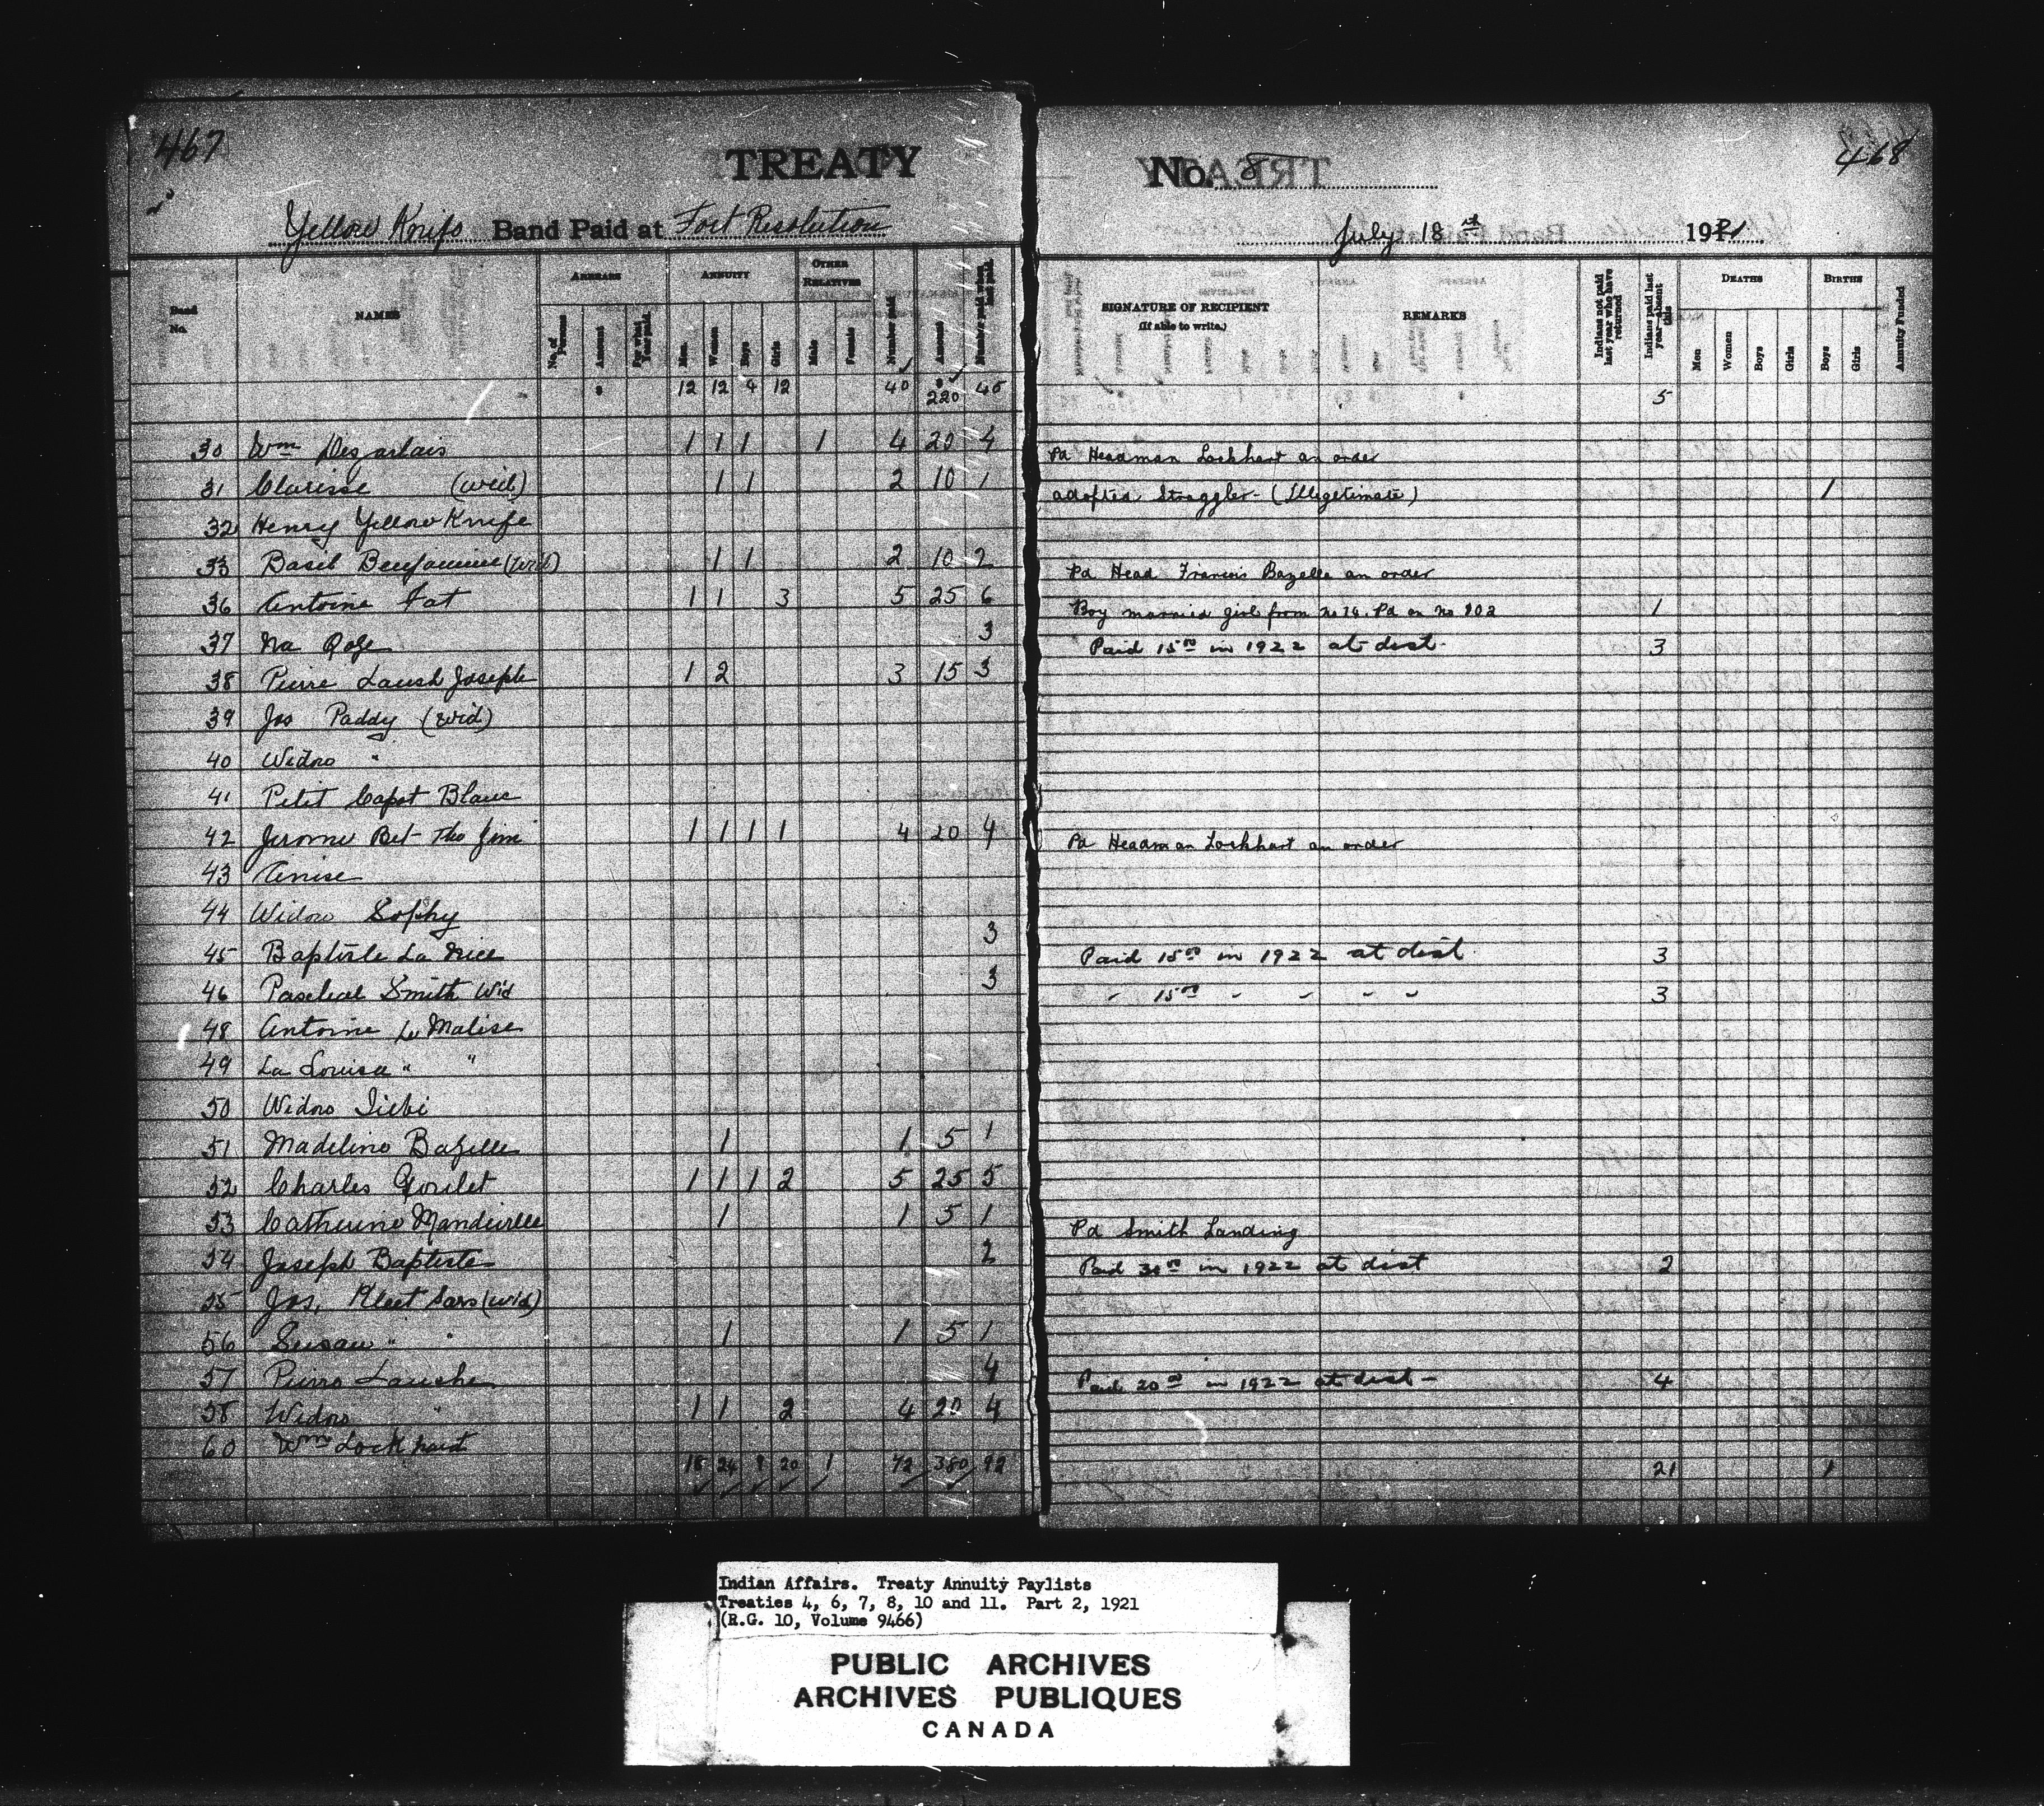 467
TREATY
Yellow Knife Band Paid at Fort Resolution
Band No. NAMES ARREARS ANNUITY OTHER RELATIVES Number paid Amount Number paid when last paid
No. of Persons Amount For what Year paid Men Women Boys Girls Male Female
$ 12 12 4 12 40 $ 220 45
30 Wm Desjarlais 1 1 1 1 4 20 4
31 Clarisse (wid) 1 1 2 10 1
32 Henry Yellow Knife
33 Basil Benjamine (wid) 1 1 2 10 2
36 Antoine Fat 1 1 3 5 25 6
37 Na 3
38 Pierre Joseph 1 2 3 15 3
39 Jos Paddy (wid)
40 Widow "
41 Petit Capot Blanc
42 Jerome Bet Tho Jim 1 1 1 1 4 20 4
43 Anise
44 Widow Sophy
45 Baptiste La 3
46 Paschal Smith Wid 3
48 Antoine Le Malise
49 La Louisa " "
50 Widow
51 Madeline Bazelle 1 1 5 1
52 Charles Goulet 1 1 1 2 5 25 5
53 Catherine Mandeville 1 1 5 1
54 Joseph Baptiste 2
55 Jos. (wid)
56 Susan " " 1 1 5 1
57 Pierre Lauche 4
58 Widow " 1 1 2 4 20 4
60 Wm Lockhart
18 24 9 20 1 72 380 92
468
No. 8
July 18th 1921
SIGNATURE OF RECIPIENT (If able to write.) REMARKS Indians not paid last year who have returned Indians paid last year—absent this DEATHS BIRTHS Annuity Funded
Men Women Boys Girls Boys Girls
5
Pd Headman Lockhart an order
adopted Straggler - (Illegetimate) 1
Pd Head Francois Bazelle an order
Boy married girl from no 14. Pd on no 102 1
Paid 15 00 in 1922 at dist. 3
Pd Headman Lockhart an order
Paid 15 00 in 1922 at dist. 3
" 15 00 " " " " 3
Pd Smith Landing
Paid 30 00 in 1922 at dist 2
Paid 20 00 in 1922 at dist - 4
21 1
Indian Affairs. Treaty Annuity Paylists
Treaties 4, 6, 7, 8, 10 and 11. Part 2, 1921
(R.G. 10, Volume 9466)
PUBLIC ARCHIVES
ARCHIVES PUBLIQUES
CANADA